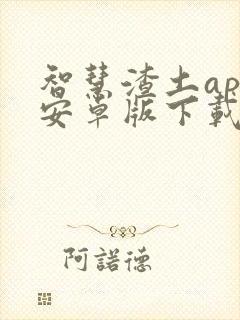 智慧渣土ap
安卓版下載
阿諾德